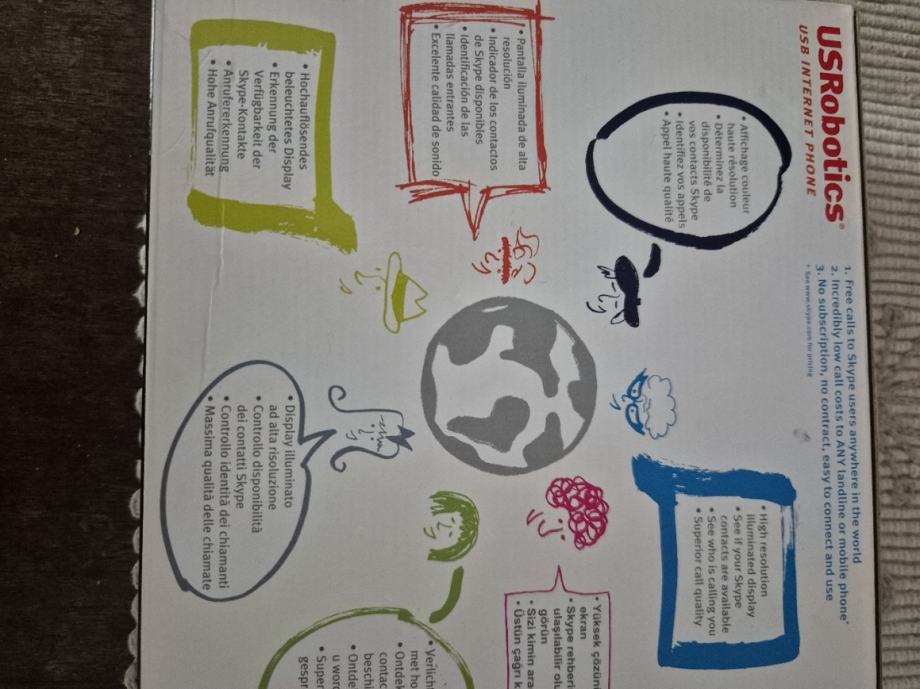 USRobotics®
USB INTERNET PHONE
1. Free calls to Skype users anywhere in the world
2. Incredibly low call costs to ANY landline or mobile phone*
3. No subscription, no contract, easy to connect and use
* See www.skype.com for pricing
• Affichage couleur
haute résolution
• Déterminez la
disponibilité de
vos contacts Skype
• Identifiez vos appels
• Appel haute qualité
• High resolution
illuminated display
• See if your Skype
contacts are available
• See who is calling you
• Superior call quality
• Pantalla iluminada de alta
resolución
• Indicador de los contactos
de Skype disponibles
• Identificación de las
llamadas entrantes
• Excelente calidad de sonido
• Yüksek
ekran
• Skype
ulaşılabilir
görün
• Sizi kimin
• Üstün çağrı
• Hochauflösendes
beleuchtetes Display
• Erkennung der
Verfügbarkeit der
Skype-Kontakte
• Anrufererkennung
• Hohe Anrufqualität
• Display illuminato
ad alta risoluzione
• Controllo disponibilità
dei contatti Skype
• Controllo identità dei chiamanti
• Massima qualità delle chiamate
met
u